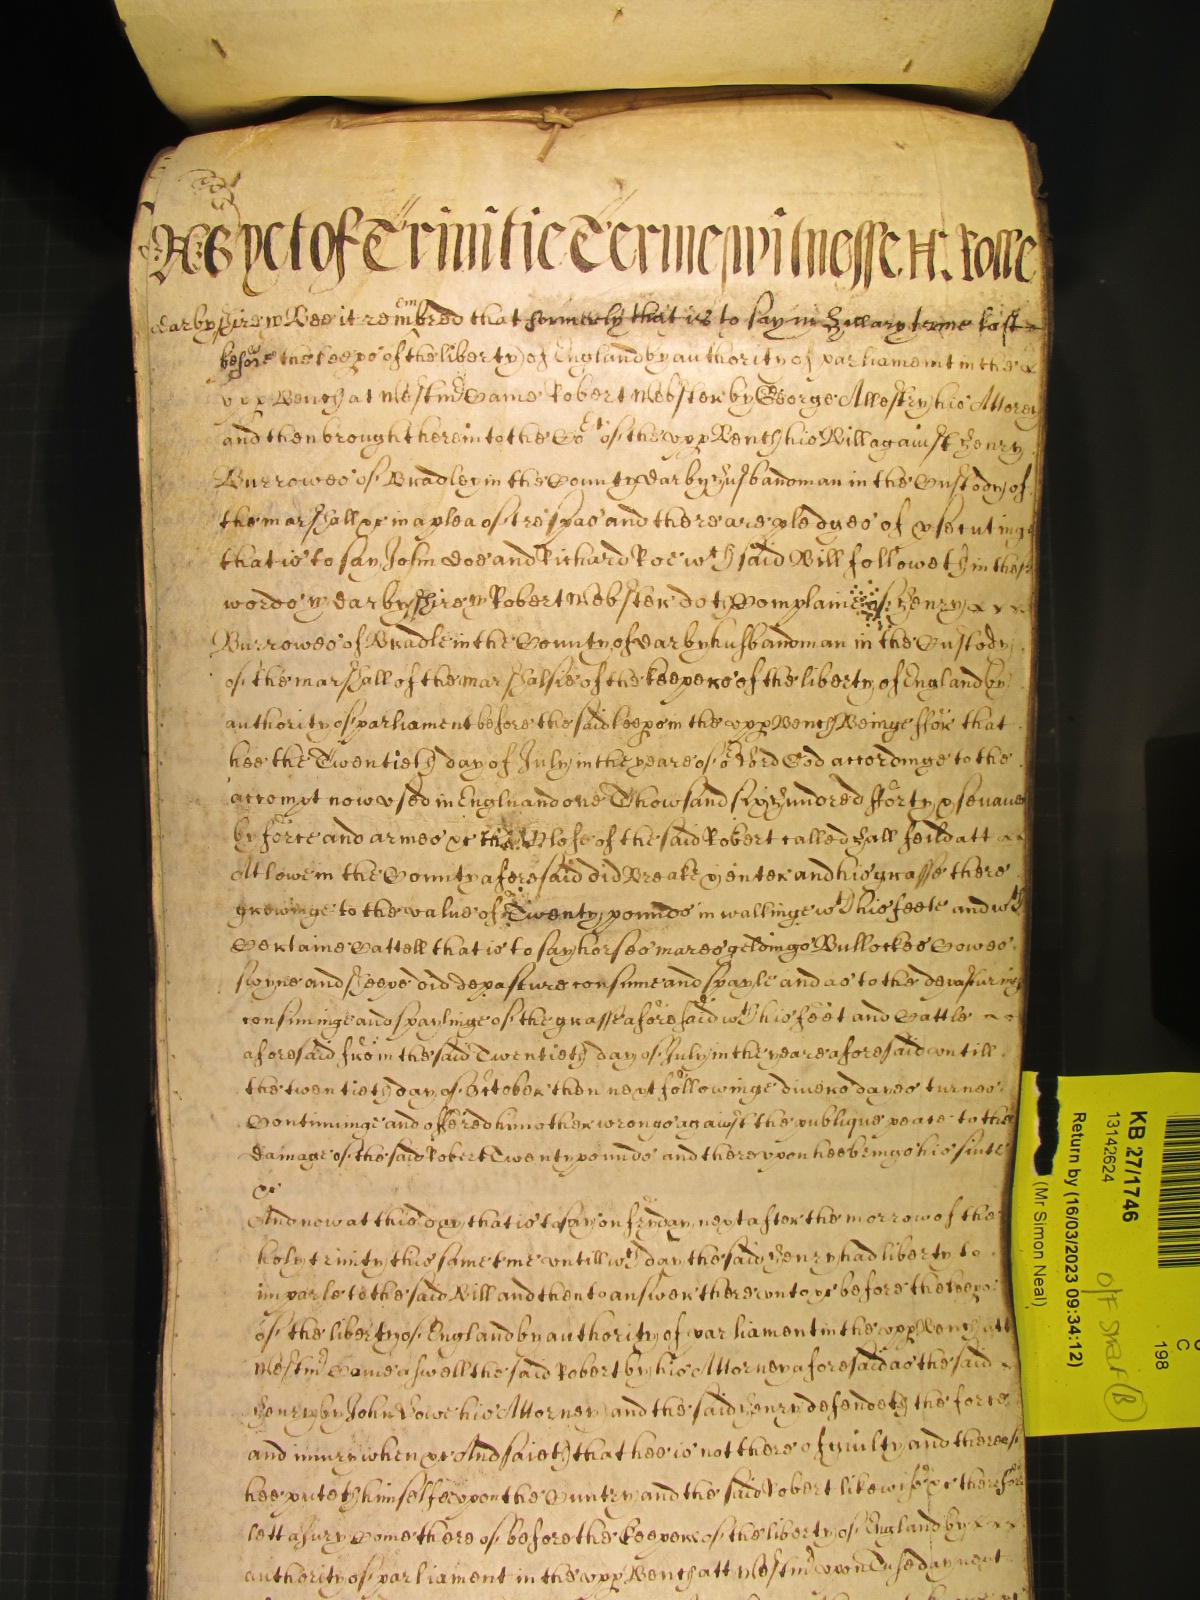 As yet of Trinitie Terme witnesse H. Rolle
Darbyshire Bee it remembred that formerly that is to say in Hillary terme last
before the keeps of the liberty of England by authority of parliament in the
upp Bench at Westm Came Robert Webster by George Allestry his Attorey
and then brought here into the Cot of the upp Bench his Bill against Henry
Burrowes of Bradley in the County Darby Husbandman in the Custody of
the marshall &c in a plea of trespas and there are pledges of psecutinge
that is to say John Doe and Richard Roe wch said Bill followeth in these
words Darbyshire Robert Webster doth Complaine of Henry
Burrowes of Bradle in the County of Darby husbandman in the Custody
of the marshall of the marshalsie of the keepers of the liberty of England by
authority of parliament before the said keeps in the upp Bench Beinge ffor that
hee the Twentieth day of July in the yeare of or Lord God accordinge to the
accompt now used in England one Thowsand six Hundred fforty & seaven
by force and armes &c the Close of the said Robert called Hall feild att
Atlowe in the County aforesaid did Breake & enter and his grasse there
growinge to the value of Twenty pounds in wallinge wth his feete and wth
Certaine Cattell that is to say horses mares geldings Bullockes Cowes
swyne and sheepe did depasture consume and spayle and as to the depasturing
consuminge and spaylinge of the grasse aforesaid wth his feet and Cattle
aforesaid from the said Twentieth day of July in the yeare aforesaid untill
the twentieth day of October then next followinge divers dayes turnes
Continuinge and offered him other wrongs against the publique peace to the
Damage of the said Robert Twenty pounds and thereupon hee brings his suite
&c
And now at this day that is to say on fryday next after the morrow of the
holy trinity this same tme untill wch day the said Henry had liberty to
imparle to the said Bill and then to answer thereunto &c before the keeps
of the liberty of England by authority of parliament in the upp Bench att
Westm Came aswell the said Robert by his Attorney aforesaid as the said
Henry by John Lowe his Attorney and the said Henry defendeth the force
and iniury when &c And saieth that hee is not there of guilty and thereof
hee puteth himselfe upon the Cuntry and the said Robert likewise &c therefore
lett a Jury Come there of before the keepers of the liberty of England by
authority of parliament in the upp Bench att Westm upon Tuseday next
KB 27/1746
13142624
Return by (16/03/2023 09:34:12)
(Mr Simon Neal)
C
198